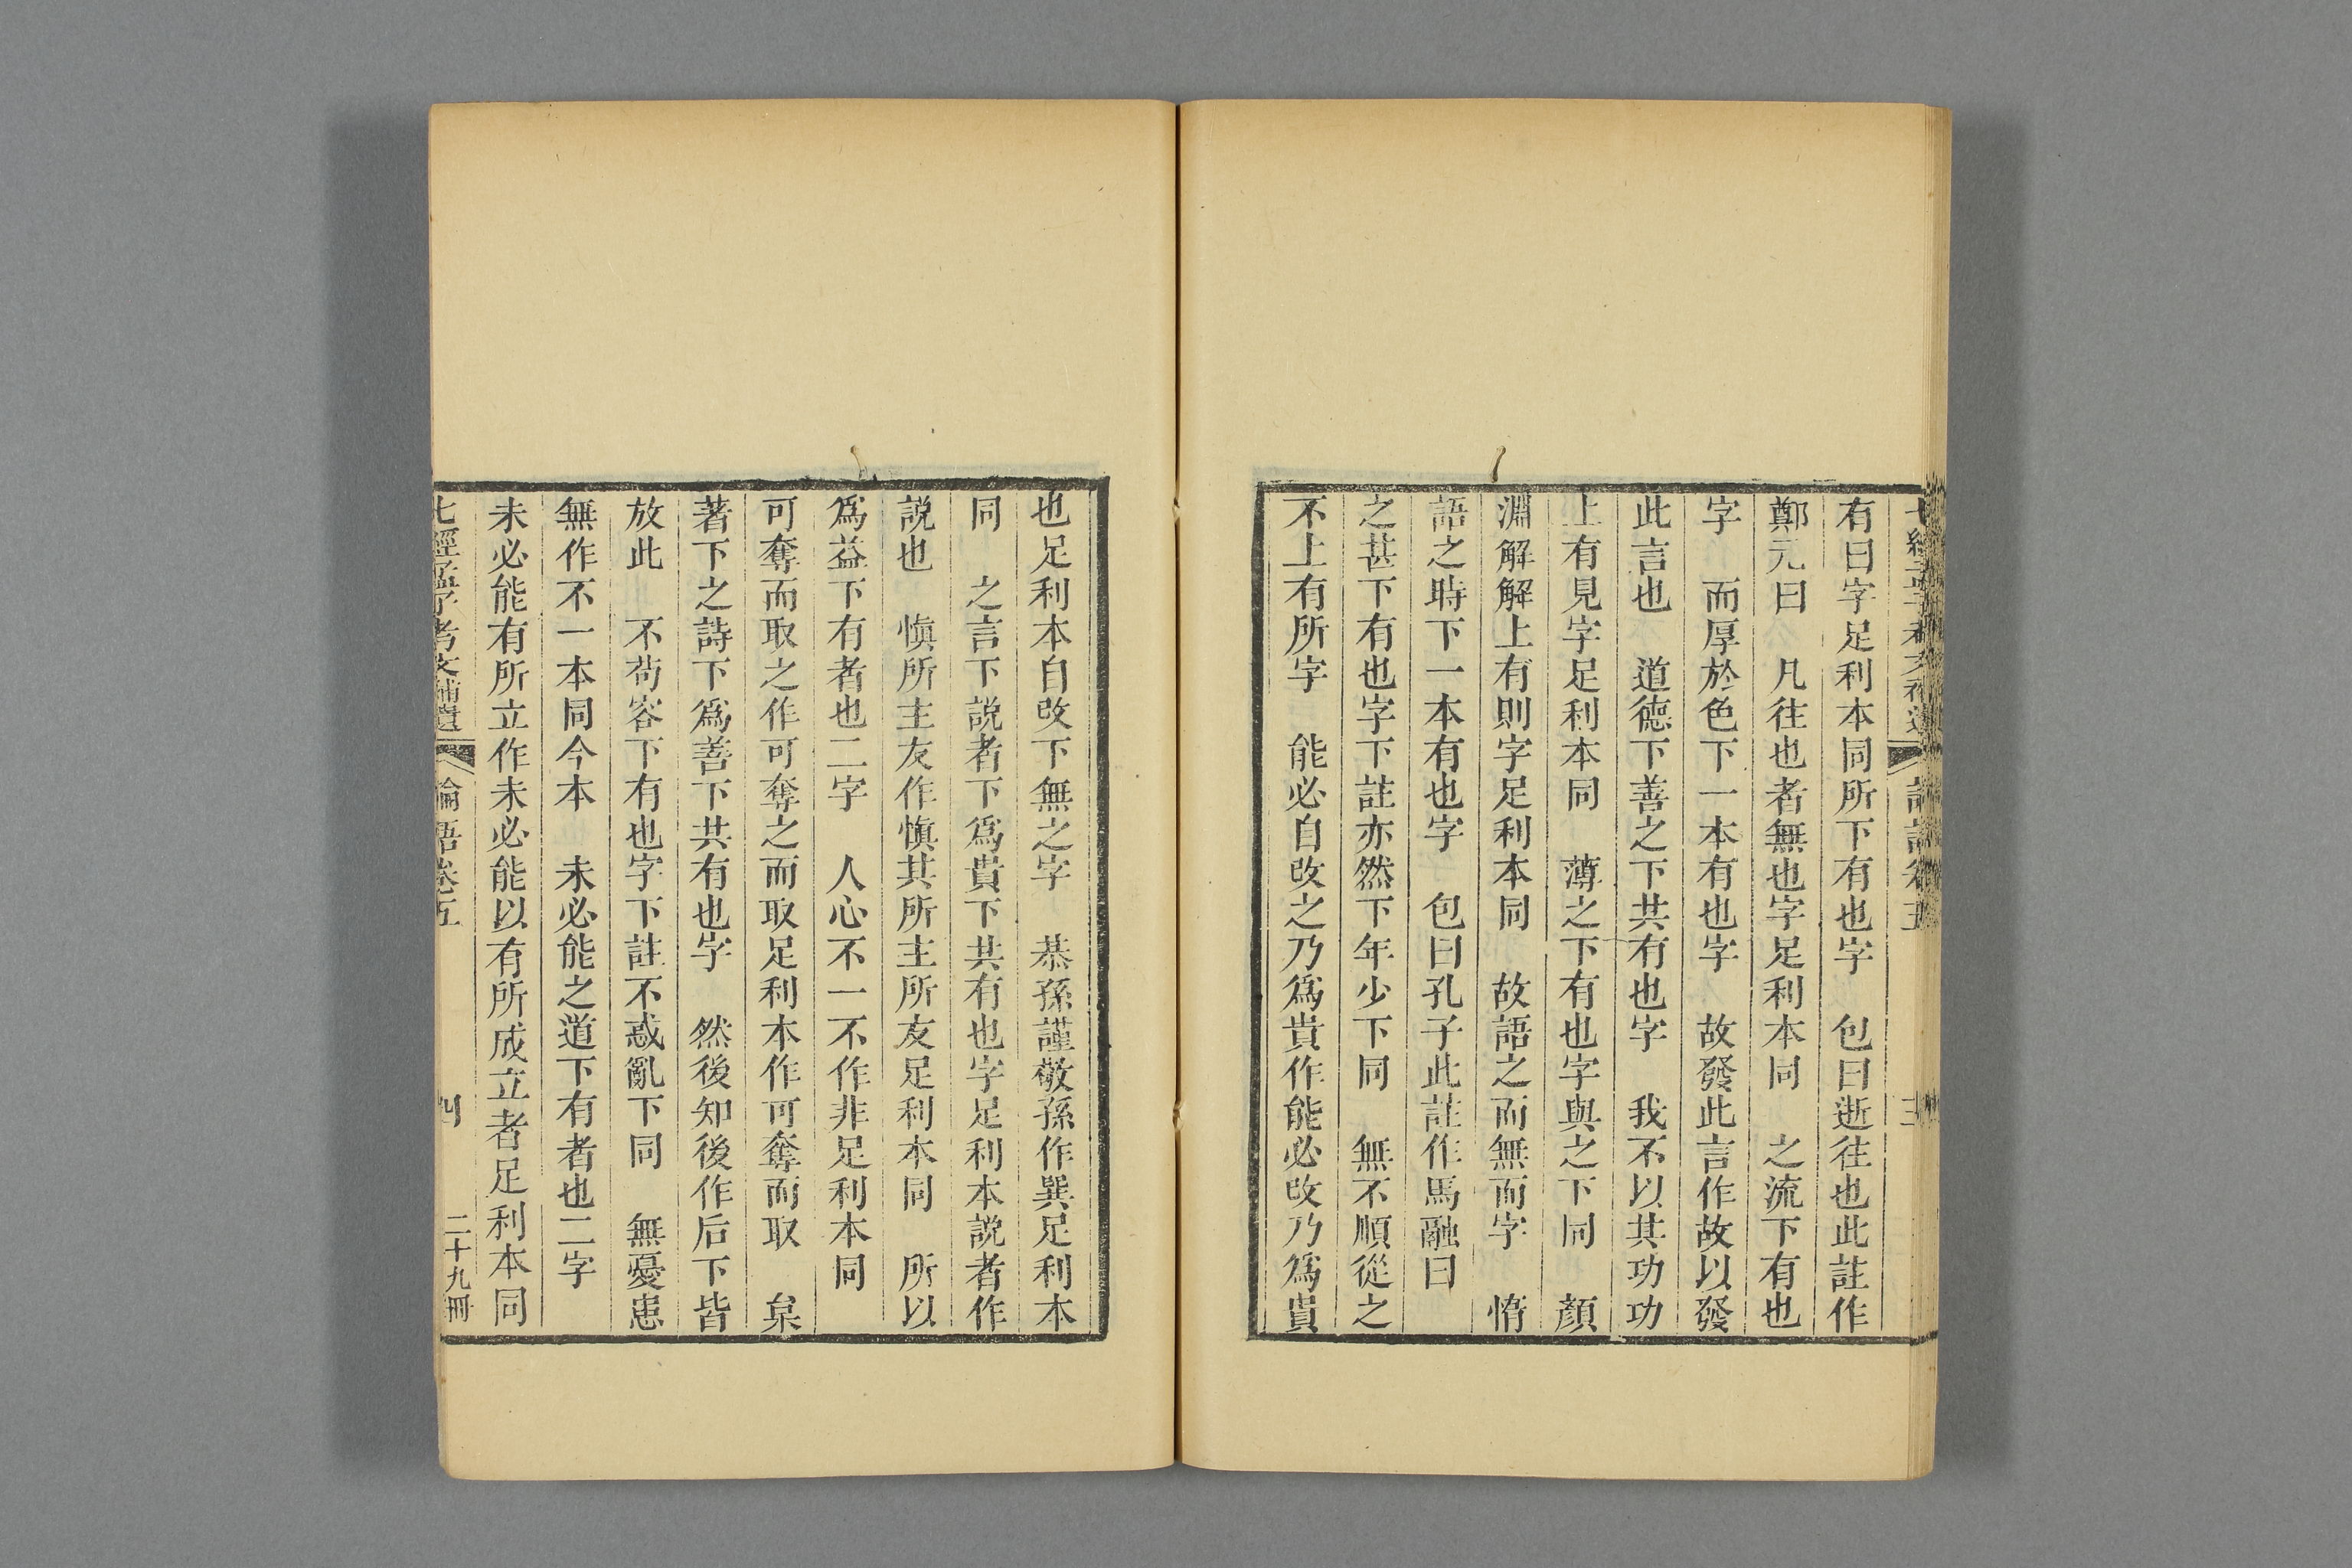 有曰字足利本同所下有也字　包曰逝往也此註作
鄭元曰　凡往也者無也字足利本同　之流下有也
字　而厚於色下一本有也字　故發此言作故以發
此言也　道德下善之下共有也字　我不以其功功
上有見字足利本同　薄之下有也字與之下同　顏
淵解解上有則字足利本同　故語之而無而字　惰
語之時下一本有也字　包曰孔子此註作馬融曰
之甚下有也字下註亦然下年少下同　無不順從之
不上有所字　能必自改之乃爲貴作能必改乃爲貴
也足利本自改下無之字　恭孫謹敬孫作巽足利本
同　之言下説者下爲貴下共有也字足利本説者作
説也　愼所主友作愼其所主所友足利本同　所以
爲益下有者也二字　人心不一不作非足利本同
可奪而取之作可奪之而取足利本作可奪而取　枲
著下之詩下爲善下共有也字　然後知後作后下皆
放此　不苟容下有也字下註不惑亂下同　無憂患
無作不一本同今本　未必能之道下有者也二字
未必能有所立作未必能以有所成立者足利本同
七經孟子考文補遺　論語卷五　四　二十九冊